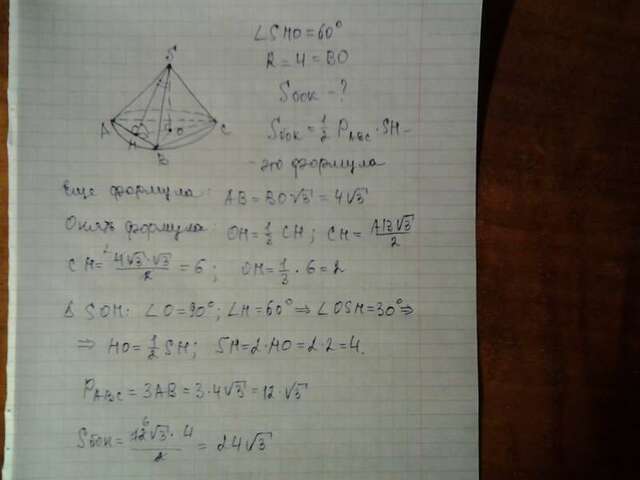 ∠SHO = 60°
R = 4 = BO
S
Sбок - ?
A
O
C
H
B
Sбок = 1/2 P_ABC · SH -
- это формула
Еще формула: AB = BO√3 = 4√3
Опять формула: OH = 1/3 CH; CH = AB√3/2
CH = 4√3·√3/2 = 6; OH = 1/3 · 6 = 2
Δ SOH: ∠O = 90°; ∠H = 60° ⇒ ∠OSH = 30° ⇒
⇒ HO = 1/2 SH; SH = 2·HO = 2·2 = 4.
P_ABC = 3AB = 3·4√3 = 12·√3
Sбок = 12√3 · 4/2 = 24√3